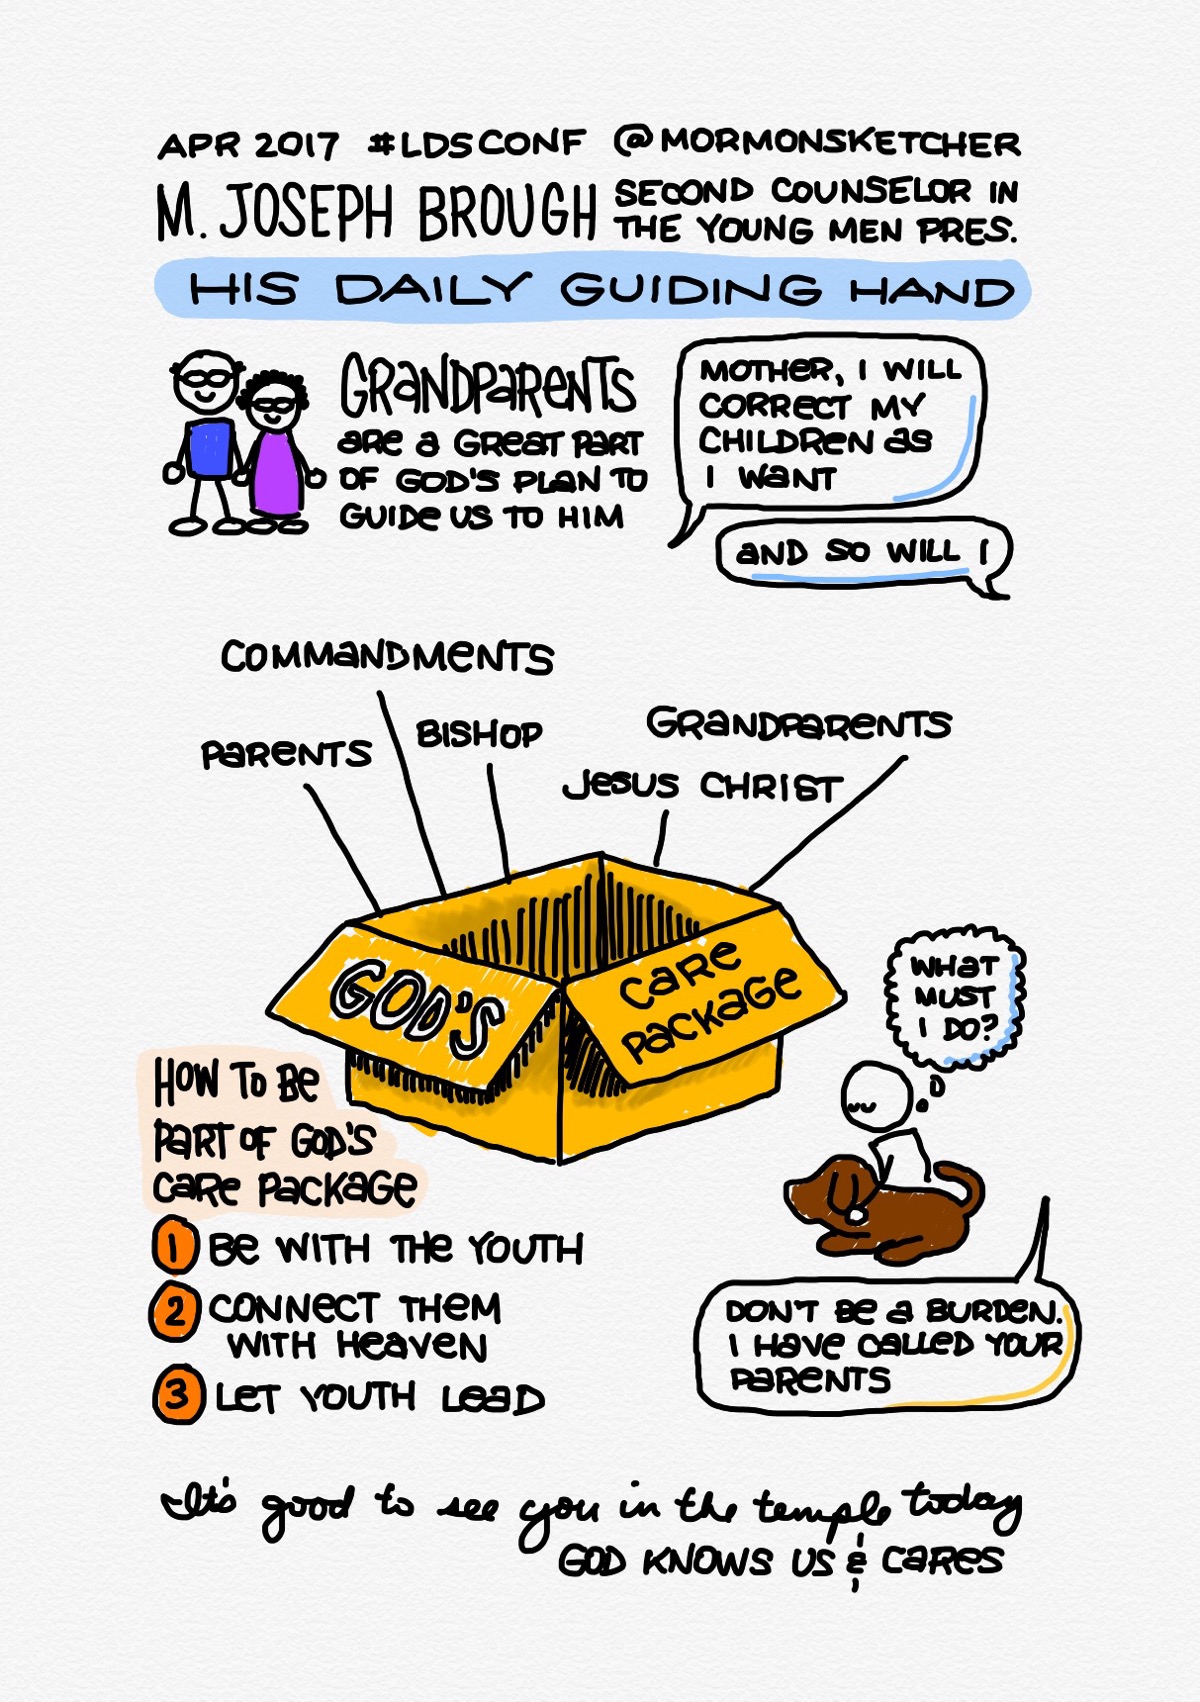 APR 2017 #LDSCONF @MORMONSKETCHER
M. JOSEPH BROUGH
SECOND COUNSELOR IN
THE YOUNG MEN PRES.
HIS DAILY GUIDING HAND
GRANDPARENTS
ARE A GREAT PART
OF GOD'S PLAN TO
GUIDE US TO HIM
MOTHER, I WILL
CORRECT MY
CHILDREN AS
I WANT
AND SO WILL I
COMMANDMENTS
PARENTS
BISHOP
GRANDPARENTS
JESUS CHRIST
GOD'S
CARE
PACKAGE
WHAT
MUST
I DO?
HOW TO BE
PART OF GOD'S
CARE PACKAGE
1 BE WITH THE YOUTH
2 CONNECT THEM
WITH HEAVEN
3 LET YOUTH LEAD
DON'T BE A BURDEN.
I HAVE CALLED YOUR
PARENTS
It's good to see you in the temple today
GOD KNOWS US & CARES